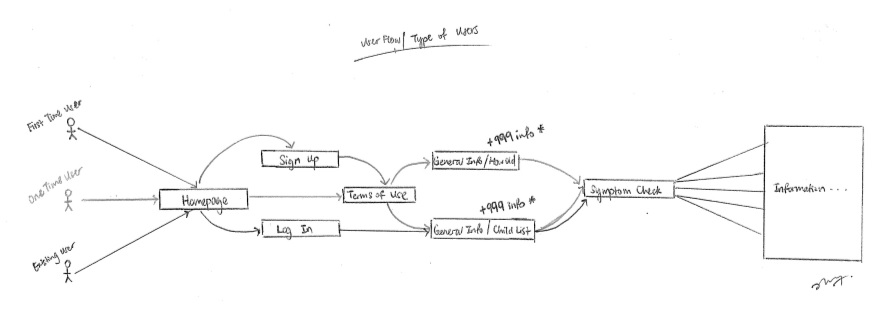 User Flow / Type of Users
First Time User
One Time User
Existing User
Homepage
Sign Up
Log In
Terms of Use
+999 info *
General Info /
+999 info *
General Info / Child List
Symptom Check
Information - - -